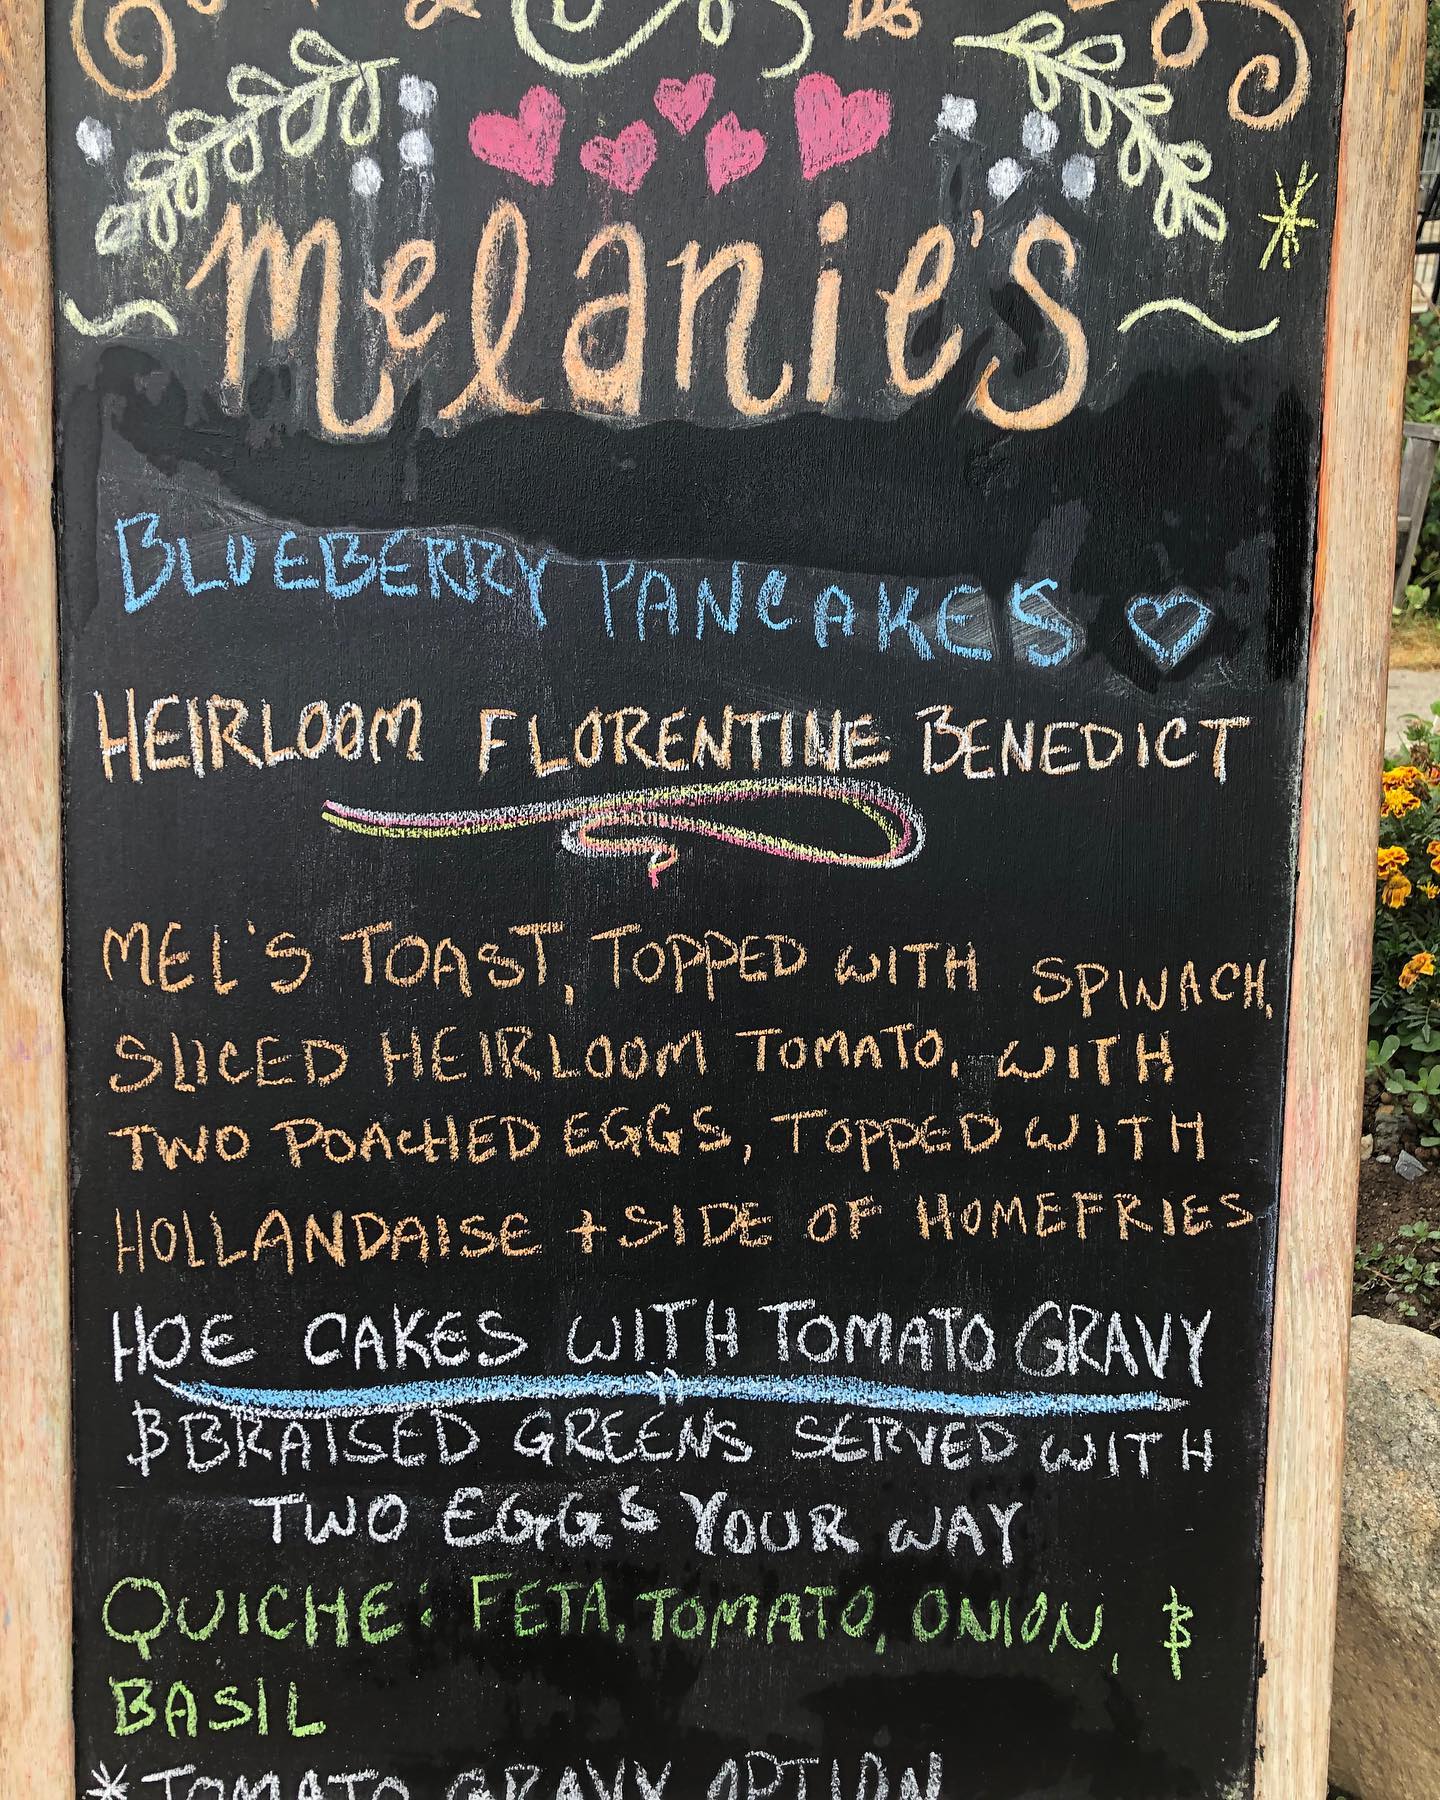 Melanie's
BLUEBERRY PANCAKES
HEIRLOOM FLORENTINE BENEDICT
MEL'S TOAST, TOPPED WITH SPINACH,
SLICED HEIRLOOM TOMATO, WITH
TWO POACHED EGGS, TOPPED WITH
HOLLANDAISE + SIDE OF HOMEFRIES
HOE CAKES WITH TOMATO GRAVY
& BRAISED GREENS SERVED WITH
TWO EGGS YOUR WAY
QUICHE: FETA, TOMATO, ONION, &
BASIL
*TOMATO GRAVY OPTION